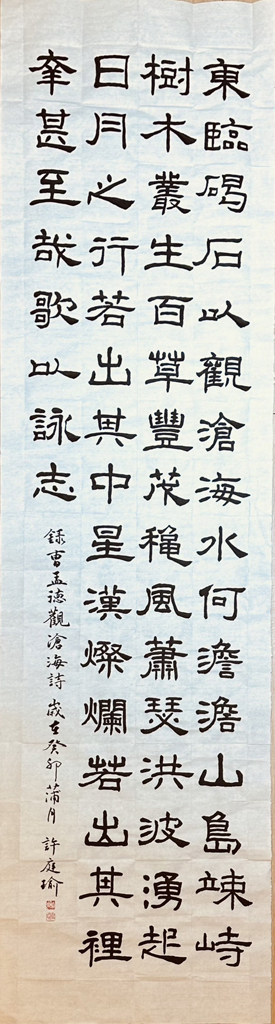 東臨碣石以觀滄海水何澹澹山島竦峙
樹木叢生百草豐茂穐風蕭瑟洪波湧起
日月之行若出其中星漢燦爛若出其裡
幸甚至哉歌以詠志
錄曹孟德觀滄海詩 歲在癸卯蒲月 許庭瑜